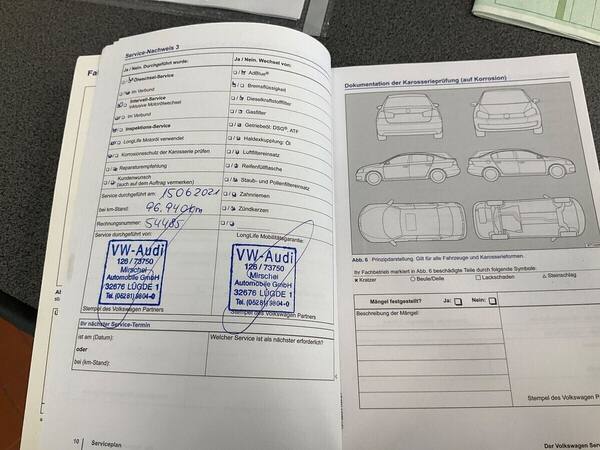 Service-Nachweis 3
Ja / Nein. Durchgeführt wurde:
Ölwechsel-Service
im Verbund
Intervall-Service
inklusive Motorölwechsel
im Verbund
Inspektions-Service
LongLife Motoröl verwendet
Korrosionsschutz der Karosserie prüfen
Reparaturempfehlung
Kundenwunsch
(auch auf dem Auftrag vermerken)
Ja / Nein. Wechsel von:
AdBlue®
Bremsflüssigkeit
Dieselkraftstofffilter
Gasfilter
Getriebeöl: DSG®, ATF
Haldexkupplung: Öl
Luftfiltereinsatz
Reifenfüllflasche
Staub- und Pollenfiltereinsatz
Zahnriemen
Zündkerzen
Service durchgeführt am: 15062021
bei km-Stand: 96.940km
Rechnungsnummer: 54485
Service durchgeführt von:
VW-Audi
126 / 73750
Mirschel
Automobile GmbH
32676 LÜGDE 1
Tel. (05281) 9804-0
Stempel des Volkswagen Partners
LongLife Mobilitätsgarantie:
VW-Audi
126 / 73750
Mirschel
Automobile GmbH
32676 LÜGDE 1
Tel. (05281) 9804-0
Stempel des Volkswagen Partners
Ihr nächster Service-Termin
ist am (Datum):
oder
bei (km-Stand):
Welcher Service ist als nächster erforderlich?
10 Serviceplan
Dokumentation der Karosserieprüfung (auf Korrosion)
Abb. 6 Prinzipdarstellung. Gilt für alle Fahrzeuge und Karosserieformen.
Ihr Fachbetrieb markiert in Abb. 6 beschädigte Teile durch folgende Symbole:
× Kratzer ○ Beule/Delle □ Lackschaden △ Steinschlag
Mängel festgestellt? Ja: Nein:
Beschreibung der Mängel:
Stempel des Volkswagen
Der Volkswagen Servic